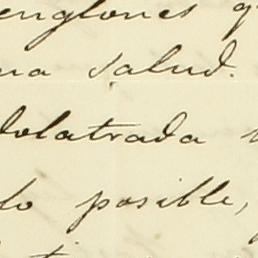 englones q
na salud.
dolatrada
lo posible,